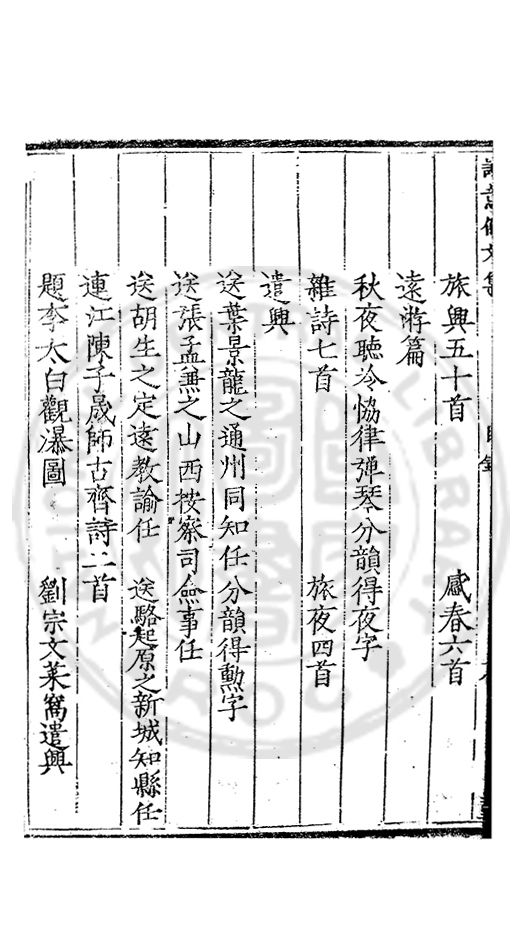 旅興五十首　感春六首
遠遊篇
秋夜聽冷協律彈琴分韻得夜字
雜詩七首　旅夜四首
遣興
送葉景龍之通州同知任分韻得勳字
送張孟兼之山西按察司僉事任
送胡生之定遠教諭任　送駱起原之新城知縣任
連江陳子晟師古齊詩二首
題李太白觀瀑圖　劉宗文菜窩遣興